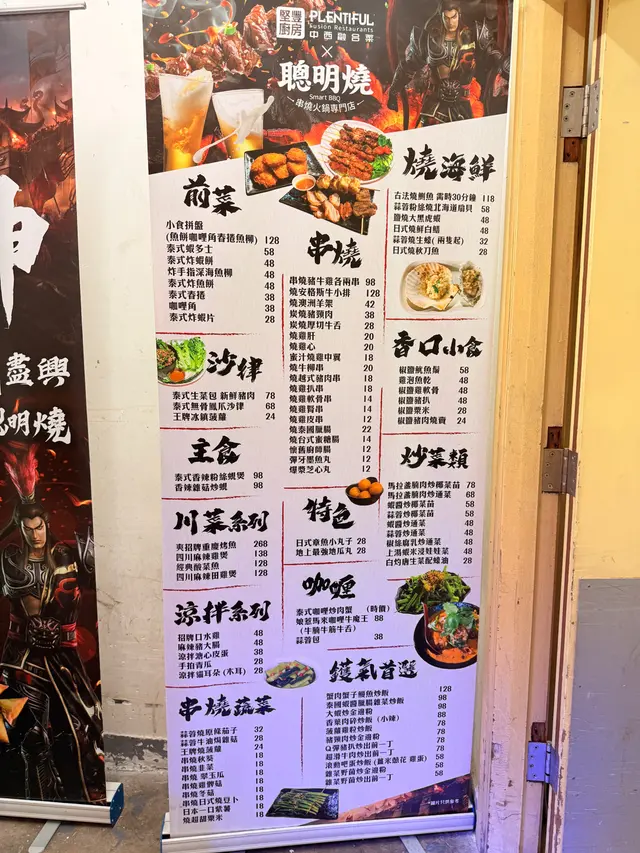 堅豐
廚房
PLENTIFUL
Fusion Restaurants
中西融合菜
×
聰明燒
Smart BBQ
串燒火鍋專門店
前菜
小食拼盤
(魚餅咖喱角春捲魚柳) 128
泰式蝦多士 58
泰式炸蝦餅 48
炸手指深海魚柳 48
泰式炸魚餅 48
泰式春捲 38
咖喱角 38
泰式炸蝦片 28
沙律
泰式生菜包 新鮮豬肉 78
泰式無骨鳳爪沙律 68
王牌冰鎮菠蘿 24
主食
泰式香辣粉絲蜆煲 98
香辣雜菇炒蜆 98
川菜系列
夾招牌重慶烤魚 268
四川麻辣雞煲 138
經典酸菜魚 128
四川麻辣田雞煲 128
涼拌系列
招牌口水雞 48
麻辣豬大腸 48
涼拌溏心皮蛋 38
手拍青瓜 28
涼拌貓耳朵 (木耳) 28
串燒蔬菜
蒜蓉燒原條茄子 32
蒜蓉牛油焗雜菇 28
王牌燒菠蘿 24
串燒秋葵 18
串燒韭菜 18
串燒 翠玉瓜 18
串燒雞髀菇 18
串燒冬菇 18
串燒日式燒豆卜 18
日本一口紫薯 18
燒超甜粟米 18
串燒
串燒豬牛雞各兩串 98
燒安格斯牛小排 128
燒澳洲羊架 42
炭燒豬頸肉 38
炭燒厚切牛舌 28
燒雞肝 20
燒雞心 20
蜜汁燒雞中翼 18
燒牛柳串 20
燒越式豬肉串 18
燒雞扒串 18
燒雞軟骨串 14
燒雞腎串 14
燒雞皮串 12
燒泰國臘腸 22
燒台式蜜糖腸 14
懷舊廚師腸 12
彈牙墨魚丸 12
爆漿芝心丸 12
特色
日式章魚小丸子 28
地上最強地瓜丸 28
咖喱
泰式咖喱炒肉蟹 (時價)
娘惹馬來咖喱牛魔王 88
(牛腩牛筋牛舌)
蒜蓉包 38
燒海鮮
古法燒鰂魚 需時30分鐘 118
蒜蓉粉絲燒北海道扇貝 58
鹽燒大黑虎蝦 48
日式燒鮮白鱔 48
蒜蓉燒生蠔(兩隻起) 32
日式燒秋刀魚 28
香口小食
椒鹽魷魚鬚 58
雞泡魚乾 48
椒鹽雞軟骨 48
椒鹽豬扒 48
椒鹽粟米 28
椒鹽豬肉燒賣 24
炒菜類
馬拉盞腩肉炒椰菜苗 78
馬拉盞腩肉炒通菜 68
蝦醬炒椰菜苗 58
蒜蓉炒椰菜苗 58
蝦醬炒通菜 48
蒜蓉炒通菜 48
椒絲腐乳炒通菜 48
上湯蝦米浸娃娃菜 48
白灼唐生菜配蠔油 28
鑊氣首選
蟹肉蟹子鰻魚炒飯 128
泰國蝦醬臘腸雞菜炒飯 98
大蝦炒金邊粉 98
香葉肉碎炒飯 (小辣) 88
菠蘿雞粒炒飯 78
豬頸肉炒金邊粉 78
Q彈豬扒炒出前一丁 78
超滑牛肉炒出前一丁 78
滾動吧蛋炒飯(薑米葱花 雞蛋) 58
雜菜野菌炒金邊粉 58
雜菜野菌炒出前一丁 58
*圖片只供參考
盡興
明燒